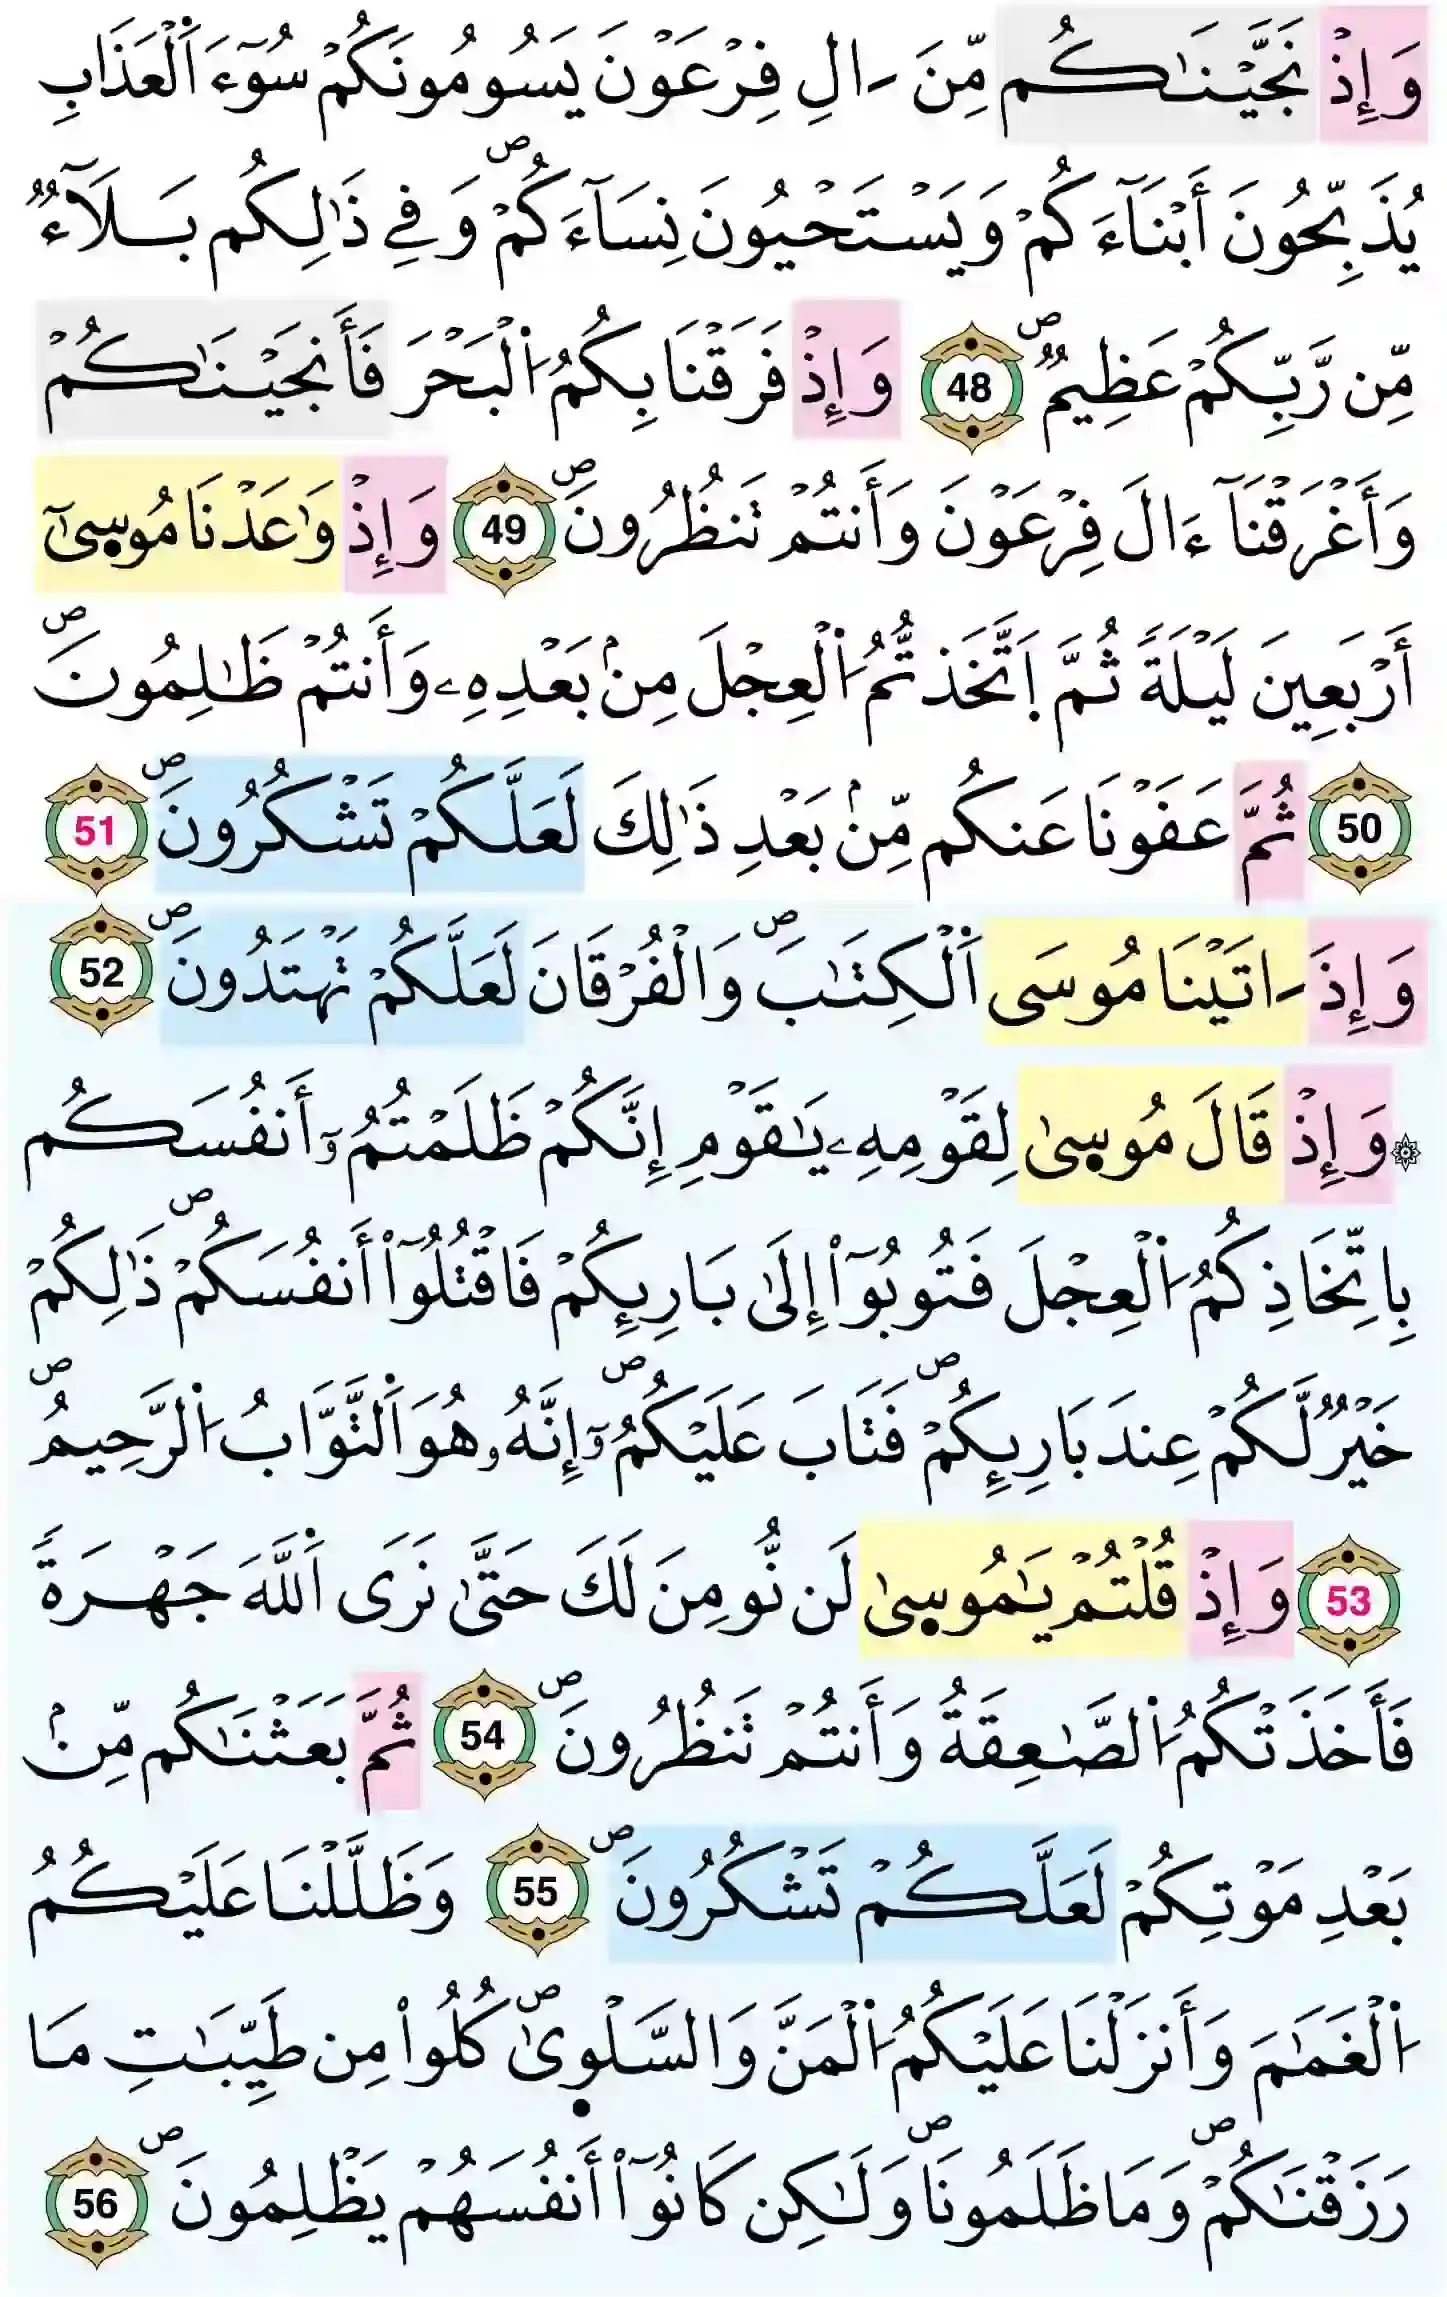 وَإِذْ نَجَّيْنَٰكُم مِّنَ ءَالِ فِرْعَوْنَ يَسُومُونَكُمْ سُوٓءَ اَ۬لْعَذَابِ
يُذَبِّحُونَ أَبْنَآءَكُمْ وَيَسْتَحْيُونَ نِسَآءَكُمْۖ وَفِے ذَٰلِكُم بَلَآءٌ
مِّن رَّبِّكُمْ عَظِيمٌۖ 48 وَإِذْ فَرَقْنَا بِكُمُ اُ۬لْبَحْرَ فَأَنجَيْنَٰكُمْ
وَأَغْرَقْنَآ ءَالَ فِرْعَوْنَ وَأَنتُمْ تَنظُرُونَۖ 49 وَإِذْ وَٰعَدْنَا مُوس۪ىٰٓ
أَرْبَعِينَ لَيْلَةً ثُمَّ اَ۪تَّخَذتُّمُ اُ۬لْعِجْلَ مِنۢ بَعْدِهِۦ وَأَنتُمْ ظَٰلِمُونَۖ
50 ثُمَّ عَفَوْنَا عَنكُم مِّنۢ بَعْدِ ذَٰلِكَ لَعَلَّكُمْ تَشْكُرُونَۖ 51
وَإِذَ اٰتَيْنَا مُوسَى اَ۬لْكِتَٰبَۖ وَالْفُرْقَانَ لَعَلَّكُمْ تَهْتَدُونَۖ 52
۞ وَإِذْ قَالَ مُوس۪ىٰ لِقَوْمِهِۦ يَٰقَوْمِ إِنَّكُمْ ظَلَمْتُمُۥٓ أَنفُسَكُم
بِاتِّخَاذِكُمُ اُ۬لْعِجْلَ فَتُوبُوٓاْ إِلَىٰ بَارِئِكُمْ فَاقْتُلُوٓاْ أَنفُسَكُمْۖ ذَٰلِكُمْ
خَيْرٌ لَّكُمْ عِندَ بَارِئِكُمْۖ فَتَابَ عَلَيْكُمُۥٓۖ إِنَّهُۥ هُوَ اَ۬لتَّوَّابُ اُ۬لرَّحِيمُۖ
53 وَإِذْ قُلْتُمْ يَٰمُوس۪ىٰ لَن نُّومِنَ لَكَ حَتَّىٰ نَرَى اَ۬للَّهَ جَهْرَةً
فَأَخَذَتْكُمُ اُ۬لصَّٰعِقَةُ وَأَنتُمْ تَنظُرُونَۖ 54 ثُمَّ بَعَثْنَٰكُم مِّنۢ
بَعْدِ مَوْتِكُمْ لَعَلَّكُمْ تَشْكُرُونَۖ 55 وَظَلَّلْنَا عَلَيْكُمُ
اُ۬لْغَمَٰمَ وَأَنزَلْنَا عَلَيْكُمُ اُ۬لْمَنَّ وَالسَّلْو۪ىٰۖ كُلُواْ مِن طَيِّبَٰتِ مَا
رَزَقْنَٰكُمْۖ وَمَا ظَلَمُونَاۖ وَلَٰكِن كَانُوٓاْ أَنفُسَهُمْ يَظْلِمُونَۖ 56